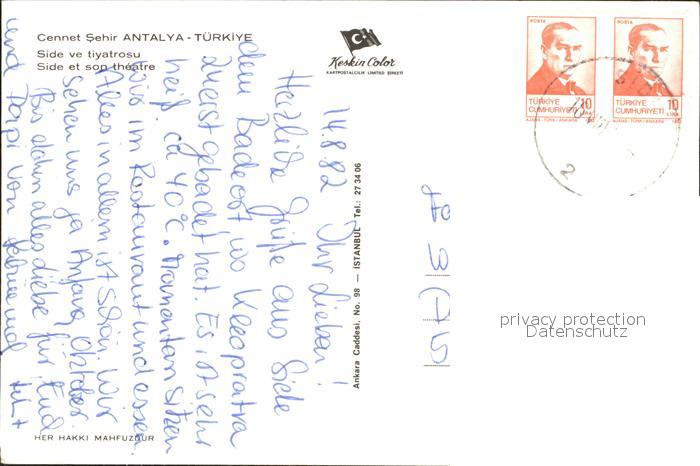 Cennet Şehir ANTALYA - TÜRKİYE
Side ve tiyatrosu
Side et son théatre
Keskin Color
KARTPOSTALCILIK LIMITED ŞIRKETI
POSTA
TÜRKİYE
CUMHURİYETİ
10
LİRA
AJANS-TÜRK-ANKARA
POSTA
TÜRKİYE
CUMHURİYETİ
10
LİRA
AJANS-TÜRK-ANKARA
14.8.82 Ihr Lieben!
Herzliche Grüße aus Side
dem Badeort, wo Kleopratra
zuerst gebadet hat. Es ist sehr
heiß, ca 40°C. Momentan sitzen
wir im Restaurant und essen
Alles in allem ist schön. Wir
sehen uns ja Anfang Oktober.
Bis dahin alles Liebe für Euch
und von
Ankara Caddesi, No. 98 — İSTANBUL Tel.: 27 34 06
HER HAKKI MAHFUZDUR
privacy protection
Datenschutz